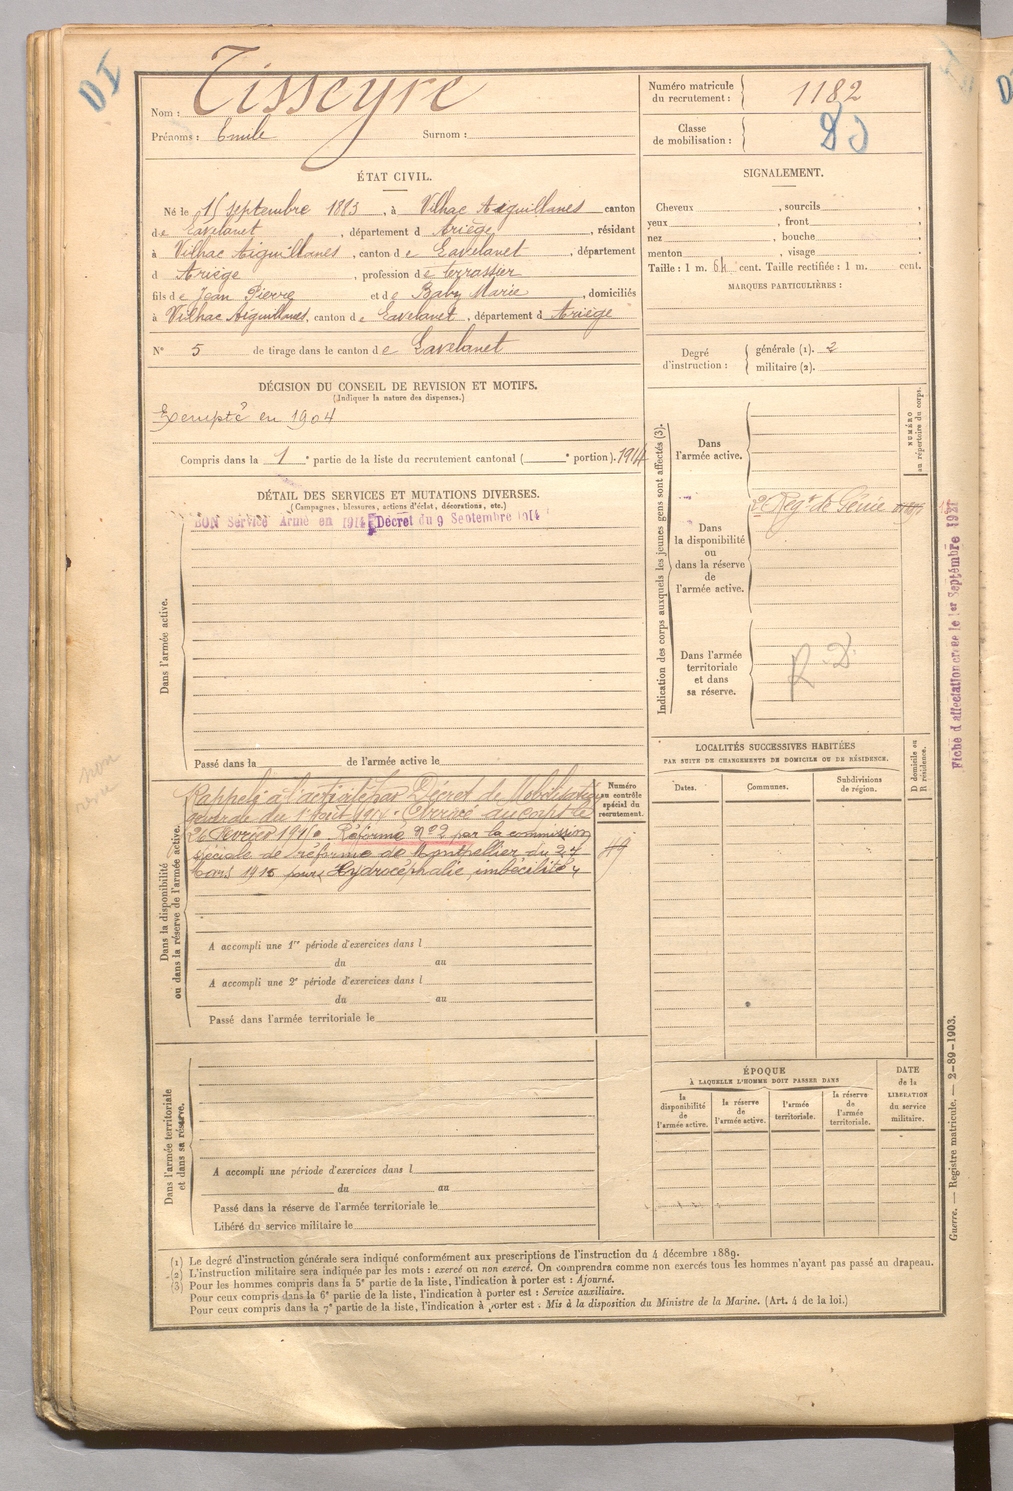 DI
Nom : Tisseyre
Prénoms : Emile Surnom :
Numéro matricule du recrutement : 1182
Classe de mobilisation :
ÉTAT CIVIL.
Né le 15 septembre 1883, à Vilhac Aiguillanes canton
de Lavelanet, département d Ariège, résidant
à Vilhac Aiguillanes, canton de Lavelanet, département
d Ariège, profession de terrassier
fils de Jean Pierre et de Baby Marie, domiciliés
à Vilhac Aiguillanes, canton de Lavelanet, département d Ariège
N° 5 de tirage dans le canton de Lavelanet
SIGNALEMENT.
Cheveux , sourcils ,
yeux , front ,
nez , bouche ,
menton , visage ,
Taille : 1 m. 64 cent. Taille rectifiée : 1 m. cent.
MARQUES PARTICULIÈRES :
Degré d'instruction :
générale (1). 2
militaire (2).
DÉCISION DU CONSEIL DE REVISION ET MOTIFS.
(Indiquer la nature des dispenses.)
Exempté en 1904
Compris dans la 1e partie de la liste du recrutement cantonal ( e portion). 1914
DÉTAIL DES SERVICES ET MUTATIONS DIVERSES.
(Campagnes, blessures, actions d'éclat, décorations, etc.)
BON Service Armé en 1914 Décret du 9 Septembre 1914
Dans l'armée active.
Passé dans la de l'armée active le
Dans la disponibilité
ou dans la réserve de l'armée active.
Rappelé à l'activité par Décret de Mobilisation
générale du 1 Août 1914. Arrivé au corps le
24 février 1915. Réformé N°2 par la commission
spéciale de réforme de Montpellier du 24
Mars 1915 pour Hydrocéphalie, imbécilité
Numéro
au contrôle
spécial du
recrutement.
A accompli une 1re période d'exercices dans l
du au
A accompli une 2e période d'exercices dans l
du au
Passé dans l'armée territoriale le
Dans l'armée territoriale
et dans sa réserve.
A accompli une période d'exercices dans l
du au
Passé dans la réserve de l'armée territoriale le
Libéré du service militaire le
Indication des corps auxquels les jeunes gens sont affectés (3).
NUMÉRO
au répertoire du corps.
Dans
l'armée active.
Dans
la disponibilité
ou
dans la réserve
de
l'armée active.
2e Régt de Génie
Dans l'armée
territoriale
et dans
sa réserve.
R D
Fiche d'affectation créée le 1er Septembre 1927
LOCALITÉS SUCCESSIVES HABITÉES
PAR SUITE DE CHANGEMENTS DE DOMICILE OU DE RÉSIDENCE.
Dates.
Communes.
Subdivisions
de région.
D domicile ou
R résidence.
ÉPOQUE
À LAQUELLE L'HOMME DOIT PASSER DANS
la
disponibilité
de
l'armée active.
la réserve
de
l'armée active.
l'armée
territoriale.
la réserve
de
l'armée
territoriale.
DATE
de la
LIBÉRATION
du service
militaire.
Guerre. — Registre matricule. — 2-89-1903.
(1) Le degré d'instruction générale sera indiqué conformément aux prescriptions de l'instruction du 4 décembre 1889.
(2) L'instruction militaire sera indiquée par les mots : exercé ou non exercé. On comprendra comme non exercés tous les hommes n'ayant pas passé au drapeau.
(3) Pour les hommes compris dans la 5e partie de la liste, l'indication à porter est : Ajourné.
Pour ceux compris dans la 6e partie de la liste, l'indication à porter est : Service auxiliaire.
Pour ceux compris dans la 7e partie de la liste, l'indication à porter est : Mis à la disposition du Ministre de la Marine. (Art. 4 de la loi.)